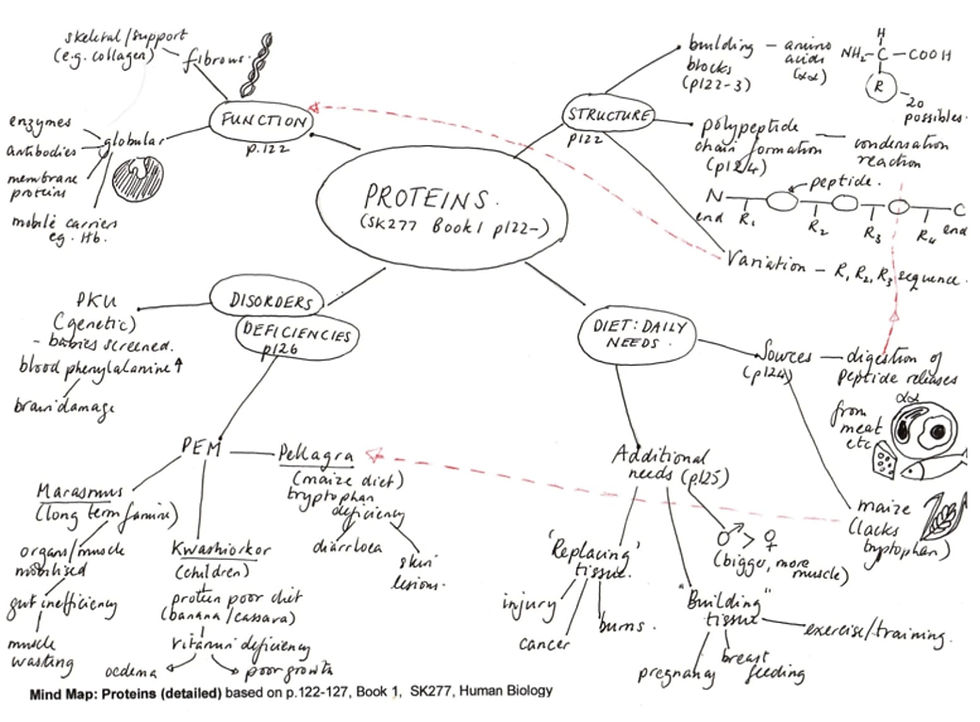 skeletal/support
(e.g. collagen)
fibrous.
FUNCTION
p.122
enzymes
antibodies
globular
membrane
proteins
mobile carriers
eg. Hb.
PROTEINS.
(SK277 Book 1 p122-)
STRUCTURE
p122
building
blocks
(p122-3)
amino
acids
(αα)
H
NH2 - C - COOH
R
20
possibles.
polypeptide
chain formation
(p124)
condensation
reaction
peptide.
N
end
R1
R2
R3
R4
C
end
Variation - R1 R2 R3 sequence.
DISORDERS
DEFICIENCIES
p126
PKU
(genetic)
- babies screened.
blood phenylalanine ↑
brain damage
PEM
Pellagra
(maize diet)
tryptophan
deficiency
diarrhoea
skin
lesions.
Marasmus
(long term famine)
organs/muscle
mobilised
gut inefficiency
muscle
wasting
Kwashiorkor
(children)
protein poor diet
(banana/cassava)
vitamin deficiency
oedema
poor growth
DIET: DAILY
NEEDS.
Sources
(p124)
digestion of
peptide releases
αα
from
meat
etc
maize
(lacks
tryptophan)
Additional
needs (p125)
♂ > ♀
(bigger, more
muscle)
'Replacing'
tissue.
injury
cancer
burns.
"Building"
tissue
exercise/training.
pregnancy
breast
feeding
Mind Map: Proteins (detailed) based on p.122-127, Book 1, SK277, Human Biology